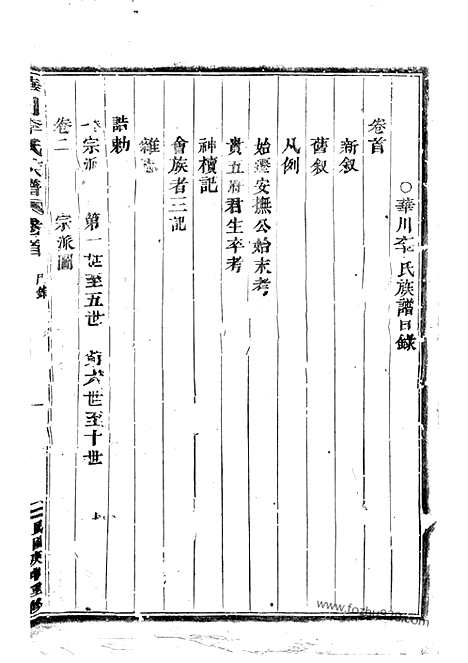 ○華川李氏族譜目錄
卷首
新叙
舊叙
凡例
始遷安撫公始末考
貴五府君生卒考
神櫝記
會族者三記
雜
誥勅
宗派 第一世至五世 第六世至十世
卷二 宗派圖
李氏族譜 卷首 目錄 一
www.fozhu920.com